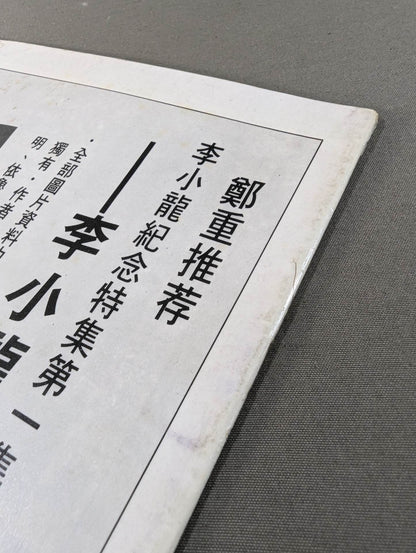 鄭重推荐
李小龍紀念特集第一集
李小龍
·全部圖片資料
獨有·作者
明、依像